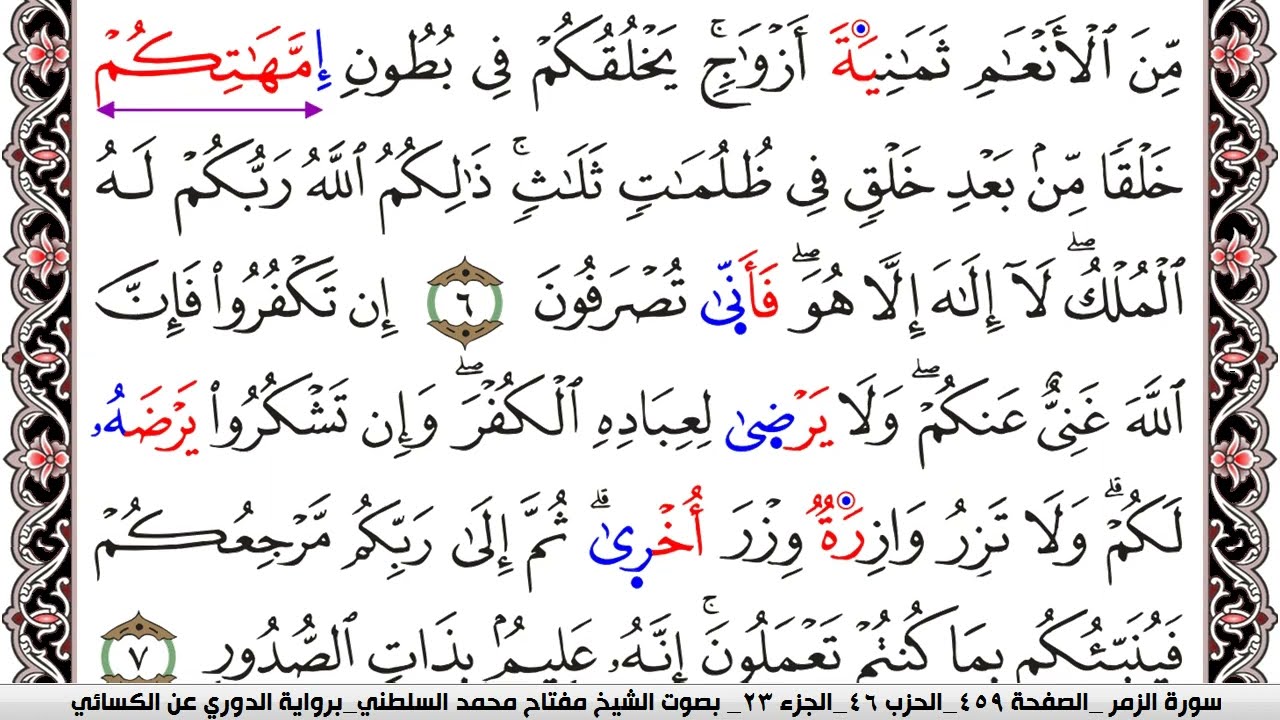 مِّنَ ٱلْأَنْعَٰمِ ثَمَٰنِيَةَ أَزْوَٰجٍۚ يَخْلُقُكُمْ فِي بُطُونِ إِمَّهَٰتِكُمْ
خَلْقًا مِّنۢ بَعْدِ خَلْقٍ فِي ظُلُمَٰتٍ ثَلَٰثٍۚ ذَٰلِكُمُ ٱللَّهُ رَبُّكُمْ لَهُ
ٱلْمُلْكُۖ لَآ إِلَٰهَ إِلَّا هُوَۖ فَأَنّىٰ تُصْرَفُونَ ٦ إِن تَكْفُرُوا۟ فَإِنَّ
ٱللَّهَ غَنِيٌّ عَنكُمْۖ وَلَا يَرْضِىٰ لِعِبَادِهِ ٱلْكُفْرَۖ وَإِن تَشْكُرُوا۟ يَرْضَهُۥ
لَكُمْۗ وَلَا تَزِرُ وَازِرَةٌ وِزْرَ أُخْرِىٰۗ ثُمَّ إِلَىٰ رَبِّكُم مَّرْجِعُكُمْ
فَيُنَبِّئُكُم بِمَا كُنتُمْ تَعْمَلُونَۚ إِنَّهُۥ عَلِيمٌۢ بِذَاتِ ٱلصُّدُورِ ٧
سورة الزمر _الصفحة ٤٥٩_الحزب ٤٦_الجزء ٢٣_ بصوت الشيخ مفتاح محمد السلطني_برواية الدوري عن الكسائي